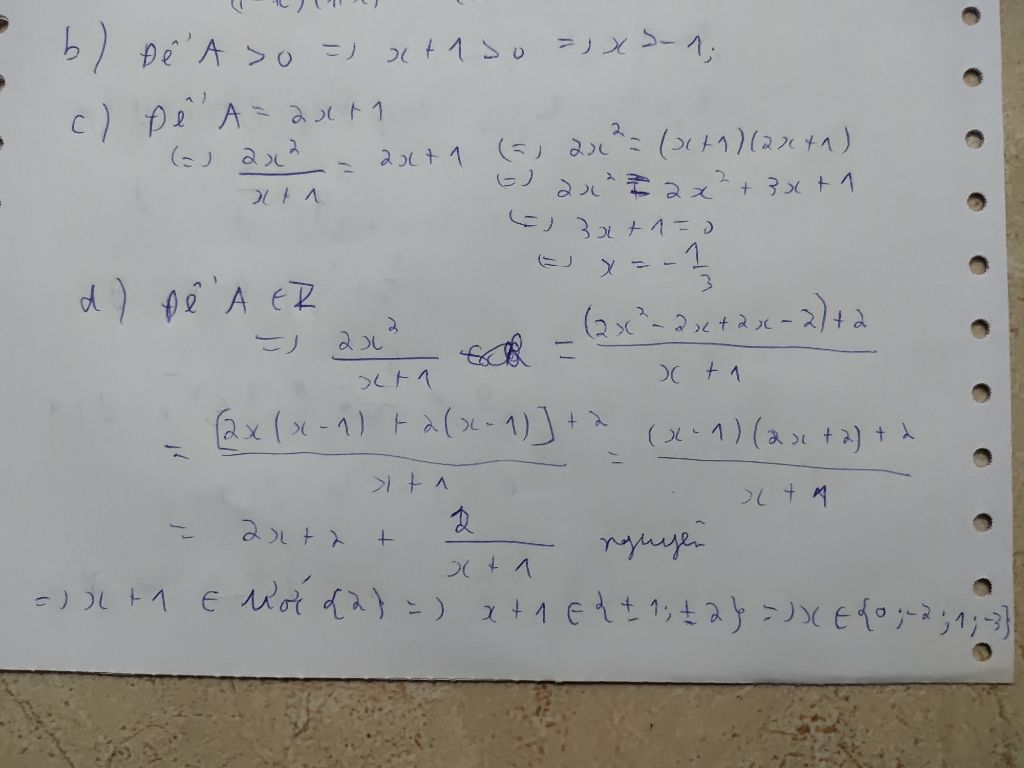 b) Để A > 0 => x + 1 > 0 => x > -1;
c) Để A = 2x + 1
(=) 2x²/(x + 1) = 2x + 1 (=) 2x² = (x+1)(2x+1)
(=) 2x² = 2x² + 3x + 1
(=) 3x + 1 = 0
(=) x = -1/3
d) Để A ∈ Z
=> 2x²/(x+1) = ((2x² - 2x + 2x - 2) + 2)/(x + 1)
= ([2x(x-1) + 2(x-1)] + 2)/(x + 1) = ((x-1)(2x+2) + 2)/(x + 1)
= 2x + 2 + 2/(x + 1) nguyên
=> x + 1 ∈ Ước {2} => x + 1 ∈ {±1; ±2} => x ∈ {0; -2; 1; -3}